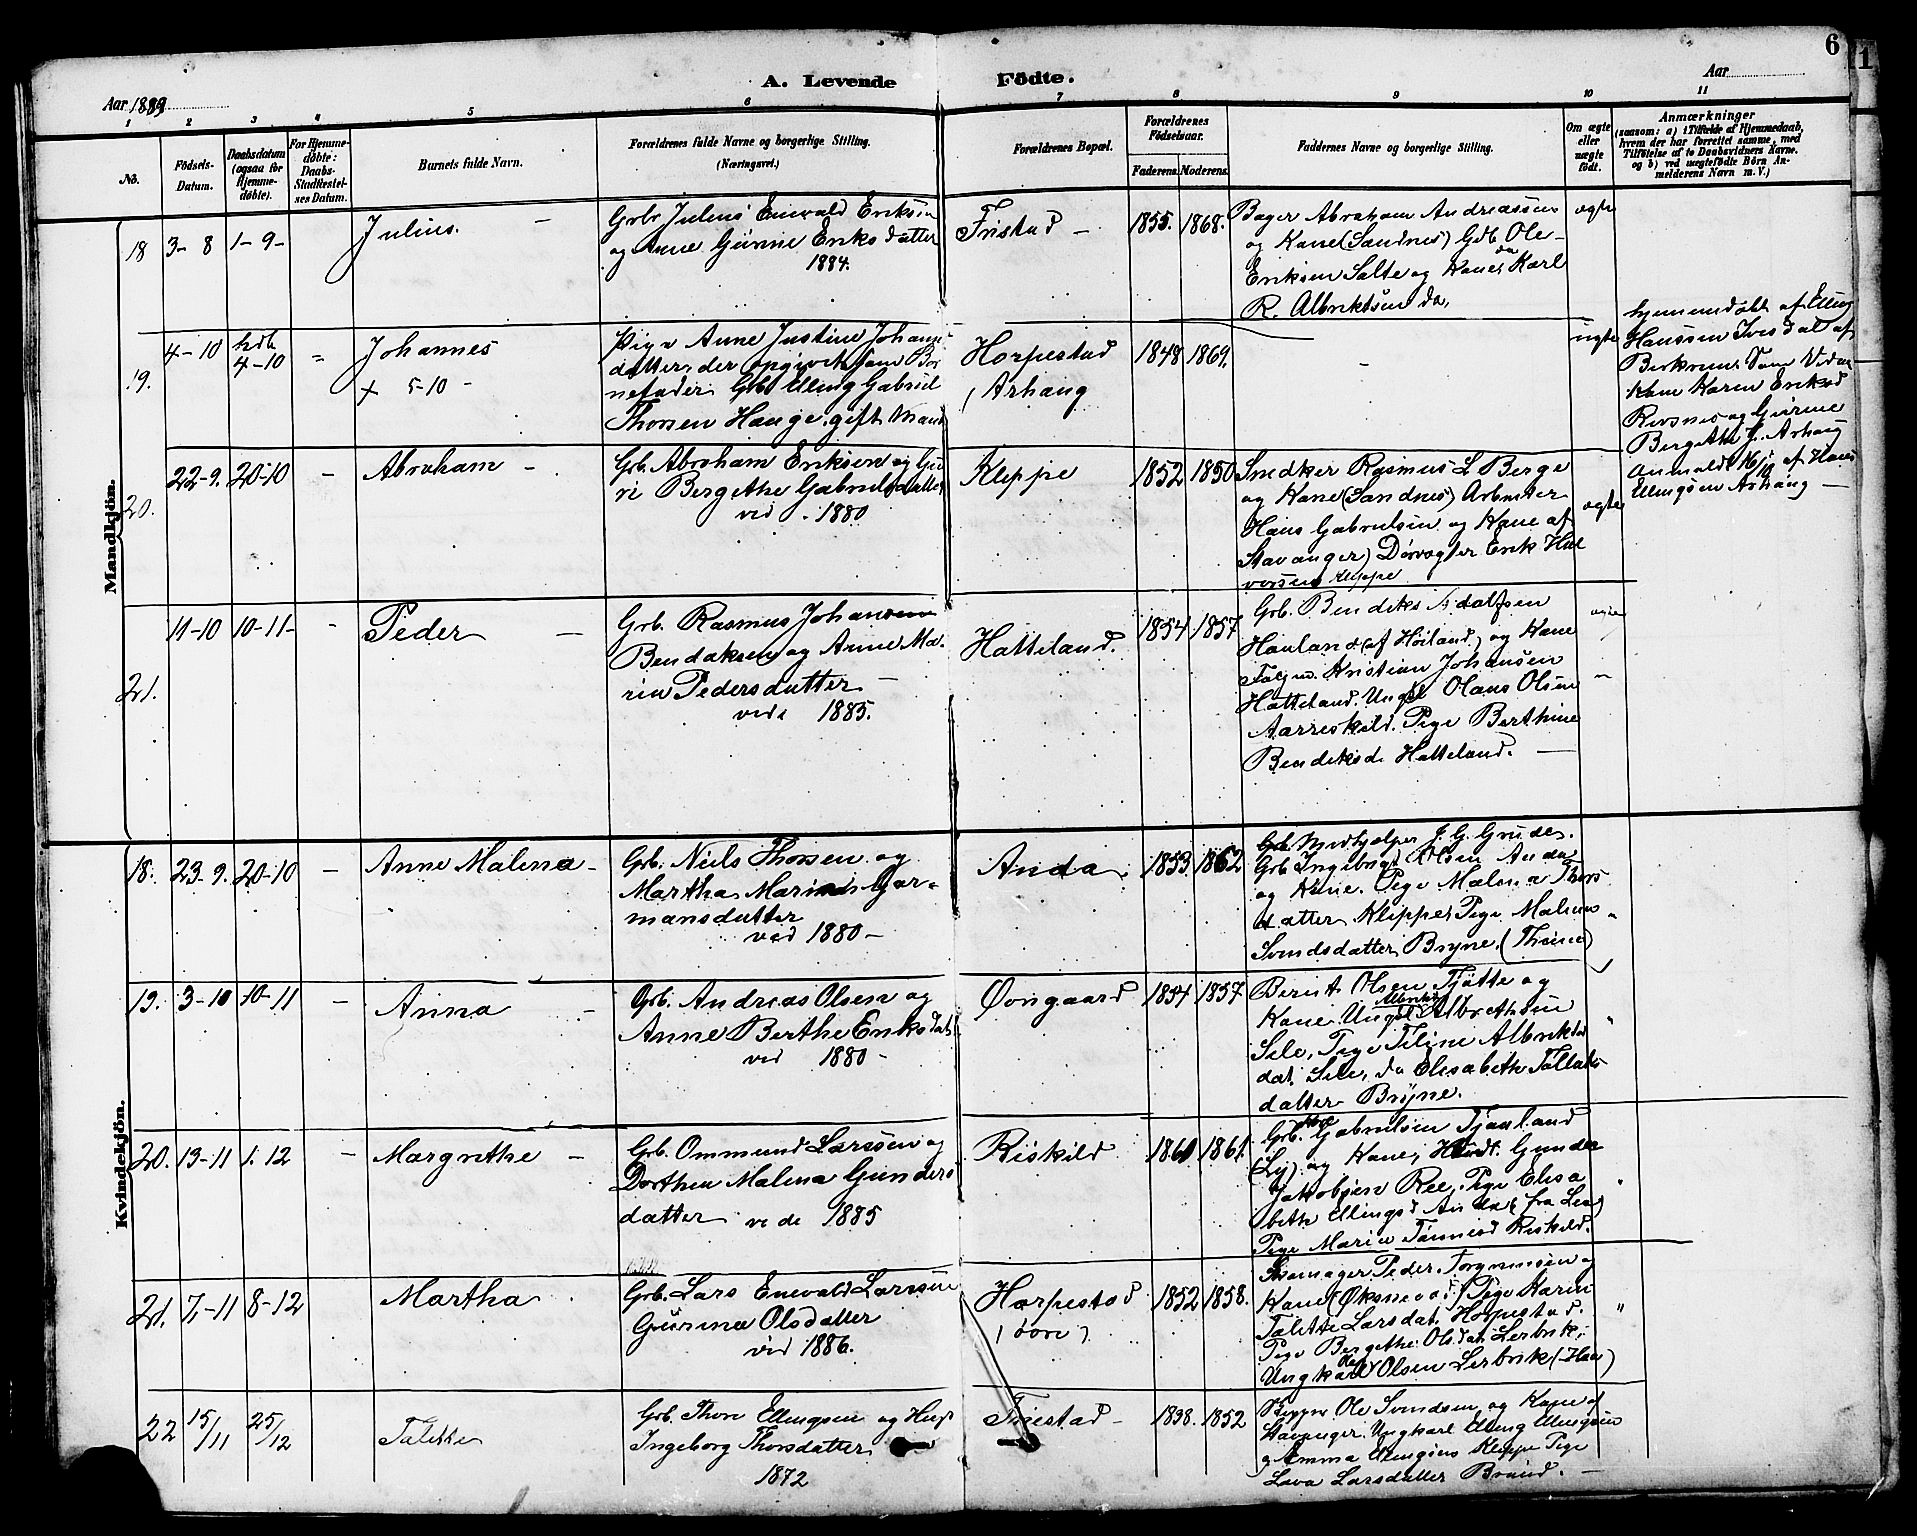 6
A. Levende Födte.
Aar 1889
Aar
1 2 3 4 5 6 7 8 9 10 11
No.
Födsels-Datum.
Daabsdatum (ogsaa for Hjemmedøbte).
For Hjemmedøbte: Daabs-Stadfæstelses Datum.
Barnets fulde Navn.
Forældrenes fulde Navne og borgerlige Stilling. (Næringsvei.)
Forældrenes Bopæl.
Forældrenes Födselsaar.
Faderens. Moderens.
Faddernes Navne og borgerlige Stilling.
Om ægte eller uægte födt.
Anmærkninger
(saasom: a) i Tilfælde af Hjemmedaab, hvem der har forrettet samme, med Tilföielse af to Daabsvidners Navne, og b) ved uægtefödte Börn Anmelderens Navn m. V.)
Mandkjön.
18 3-8 1-9- Julius. -
Grbr Julius Enevald Eriksen
og Anne Gurine Eriksdatter
1884.
Fristad - 1855. 1868.
Bager Abraham Andreassen
og Kone (Sandnes) Gdb Ole
Eriksen Salte og Kone, Karl
R. Albriktsen do,
ægte
19. 4-10 hdb 4-10 " Johannes
+ 5-10 -
Pige Anne Justine Johans-
datter, der opgivet som Bar
nefader Grb. Elling Gabriel
Thorsen Hauge, gift Mand
Horpestad
(Arhaug
1848 1869.
uægte
hjemmedøbt af Elling
Hanssen Ivesdal af
Birkrem. Vidner
Kone Karen Eriksd
Revsnes og Gurine
Bergethe J. Arhaug
Anmeldt 16/10 af Hans
Ellingsen Arhaug -
20. 22-9. 20-10 - Abraham -
Grb. Abraham Eriksen og Gu
ri Bergethe Gabrielsdatter
vid . 1880
Kleppe 1852 1850
Snedker Rasmus L Berge
og Kone (Sandnes) Arbeider
Hans Gabrielsen og Kone af
Stavanger) Dørvogter Erik Hal
vorsen Kleppe
ægte
21. 11-10 10-11- " Peder -
Grb. Rasmus Johansen
Bendiksen og Anne Ma-
rie Pedersdatter -
vide 1885.
Hatteland. 1854 1857
Grb. Bendiks Adolfsen
Hauland (af Høiland) og Kone
Kristian Johansen
Hatteland. Ungk Olaus Olsen
Aarreskild. Pige Berthine
Bendiksd. Hatteland. -
ægte
Kvindekjön.
18. 23-9. 20-10 - Anne Malena -
Grb. Niels Thorsen og
Martha Marie Gar-
mansdatter
ved 1880-
Anda. 1853. 1862
Grb Medhjelper J. G. Grude.
Grb Ingebregt Olsen Anda
og Kone. Pige Malena Thors
datter Kleppe, Pige Malene
Svendsdatter Bryne, (Thime)
"
19. 3-10 10-11 - Anna -
Grb. Andreas Olsen og
Anne Berthe Eriksdat
ved 1880-
Øongaard 1854 1857
Bernt Olsen Tjøtte og
Kone. Ungk. Albrethsen
Sele, Pige Teline Albrikts
dat. Sele, do Elisabeth Tollaks
datter Bryne.
"
20. 13-11 1. 12 - Margrethe -
Grb. Ommund Larssen og
Dorthea Malena Gunders
datter vede 1885
Riskild 1860 1861.
Grb. Gabrielsen Tjauland
(Ly) og Kone, Handl. Gunder
Jakobsen Ree. Pige Elisa
beth Ellingsd Anda (fra Lea)
Pige Marie Tønnesd Riskild.
"
21. 7,-11 8-12 Martha
Grb. Lars Enevald Larssen
Gurina Olsdatter
vid 1886.
Horpestad
(øvre) 1852 1858.
Skomager Peder Torgrimsen og
Kone (Øksnevad) Pige Karin
Talette Larsdat. Horpestad.
Pige Bergethe Olsdat. Lerbrek,
Ungkarl Olsen Lerbrek (Haa)
"
22 15/11 25/12 Talette
Grb. Thore Ellingsen og Hust
Ingeborg Thorsdatter
1872
Friestad - 1838. 1852
Ole Svendsen og Kone af
Stavanger. Ungkarl Elling Ellingsen
og Emma Ellingsens Kleppe Pige
Lava Larsdatter Braud. -